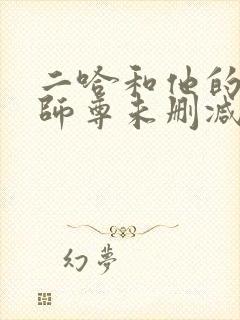 二哈和他的
師尊未删减
幻夢